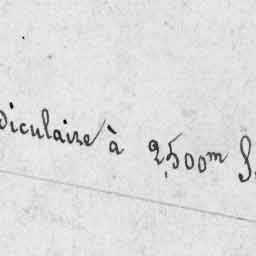 diculaire à 2,500m S.